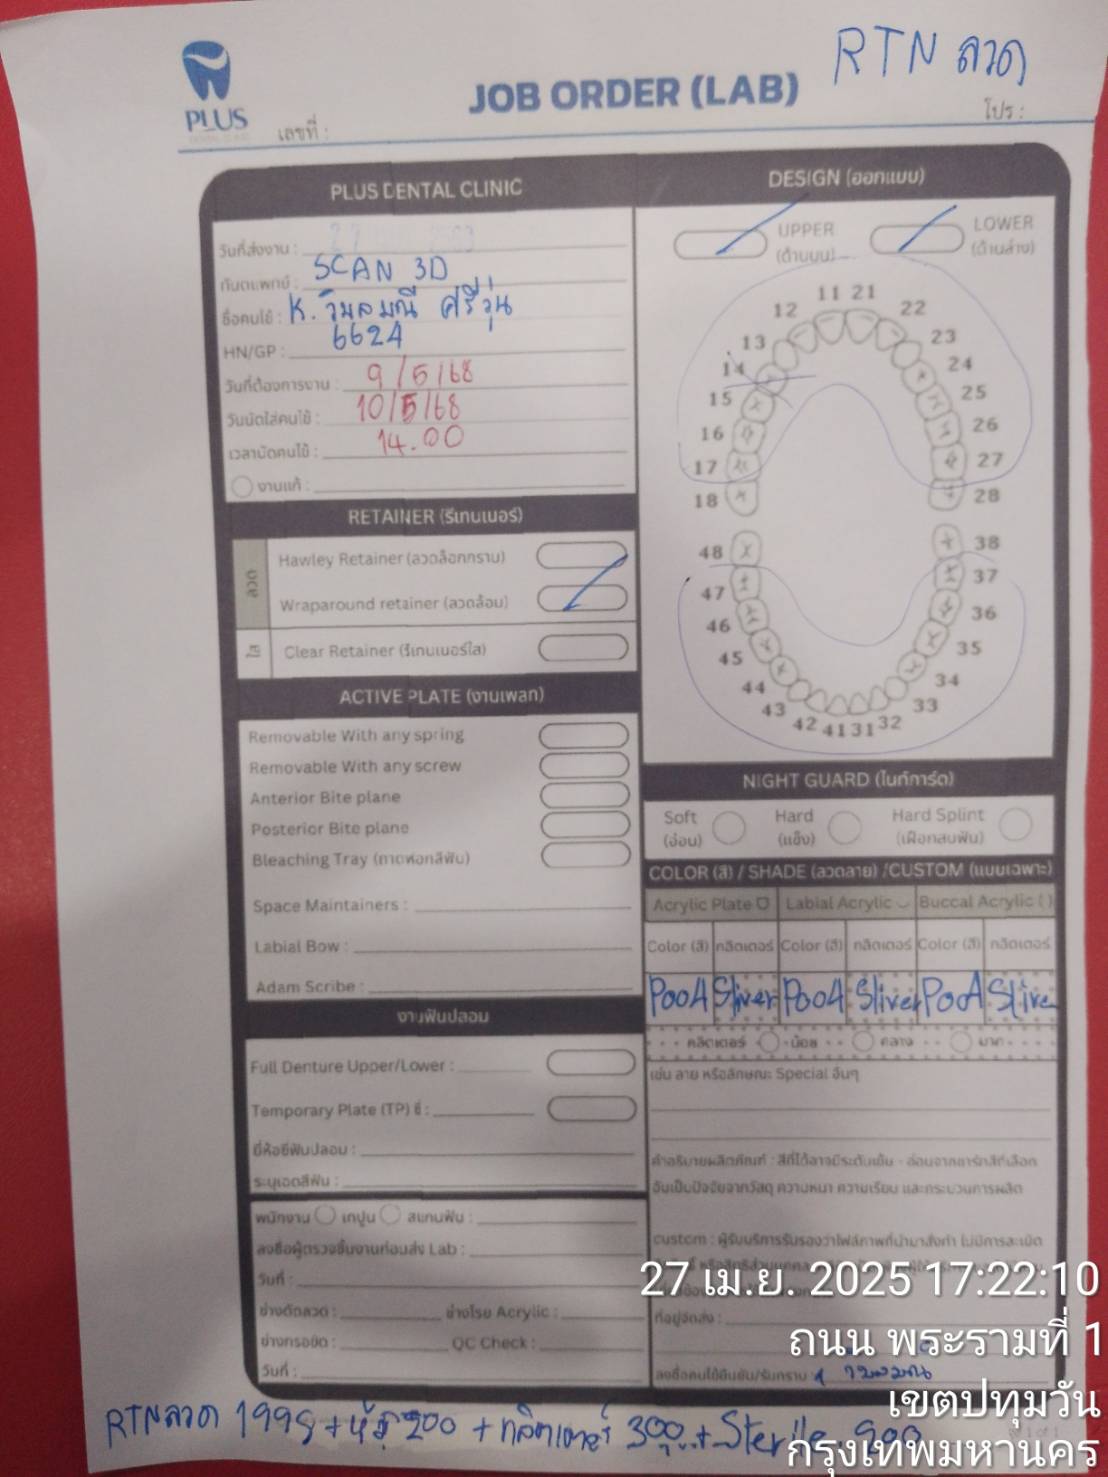 RTN ลวด
PLUS
JOB ORDER (LAB)
เลขที่ :
โปร :
PLUS DENTAL CLINIC
วันที่ส่งงาน :
ทันตแพทย์ : SCAN 3D
ชื่อคนไข้ : K. วิมลมณี ศรีวุ่น
HN/GP : 6624
วันที่ต้องการงาน : 9/5/68
วันนัดใส่คนไข้ : 10/5/68
เวลานัดคนไข้ : 14.00
งานแก้ :
RETAINER (รีเทนเนอร์)
ลวด
Hawley Retainer (ลวดล็อกกราม)
Wraparound retainer (ลวดล้อม)
ใส
Clear Retainer (รีเทนเนอร์ใส)
ACTIVE PLATE (งานเพลท)
Removable With any spring
Removable With any screw
Anterior Bite plane
Posterior Bite plane
Bleaching Tray (ถาดฟอกสีฟัน)
Space Maintainers :
Labial Bow :
Adam Scribe :
งานฟันปลอม
Full Denture Upper/Lower :
Temporary Plate (TP) ซี่ :
ยี่ห้อซี่ฟันปลอม :
ระบุเฉดสีฟัน :
พนักงาน เทปูน สแกนฟัน :
ลงชื่อผู้ตรวจชิ้นงานก่อนส่ง Lab :
วันที่ :
ช่างดัดลวด : ช่างโรย Acrylic :
ช่างกรอขัด : QC Check :
วันที่ :
DESIGN (ออกแบบ)
UPPER (ด้านบน)
LOWER (ด้านล่าง)
11 21
12 22
13 23
14 24
15 25
16 26
17 27
18 28
48 38
47 37
46 36
45 35
44 34
43 33
42 41 31 32
NIGHT GUARD (ไนท์การ์ด)
Soft (อ่อน)
Hard (แข็ง)
Hard Splint (เฝือกสบฟัน)
COLOR (สี) / SHADE (ลวดลาย) /CUSTOM (แบบเฉพาะ)
Acrylic Plate Labial Acrylic Buccal Acrylic ( )
Color (สี) กลิตเตอร์ Color (สี) กลิตเตอร์ Color (สี) กลิตเตอร์
P004 Sliver P004 Sliver P004 Slive
กลิตเตอร์ น้อย กลาง มาก
เช่น ลาย หรือลักษณะ Special อื่นๆ
คำอธิบายผลิตภัณฑ์ : สีที่ได้อาจมีระดับเข้ม - อ่อนจากชาร์ทสีที่เลือก
อันเป็นปัจจัยจากวัสดุ ความหนา ความเรียบ และกระบวนการผลิต
custom : ผู้รับบริการรับรองว่าไฟล์ภาพที่นำมาสั่งทำ ไม่มีการละเมิด
ที่อยู่จัดส่ง :
ลงชื่อคนไข้ยืนยัน/รับทราบ
27 เม.ย. 2025 17:22:10
ถนน พระรามที่ 1
เขตปทุมวัน
กรุงเทพมหานคร
RTNลวด 1999 + หุ้ม 200 + กลิตเตอร์ 300 + Sterile 200